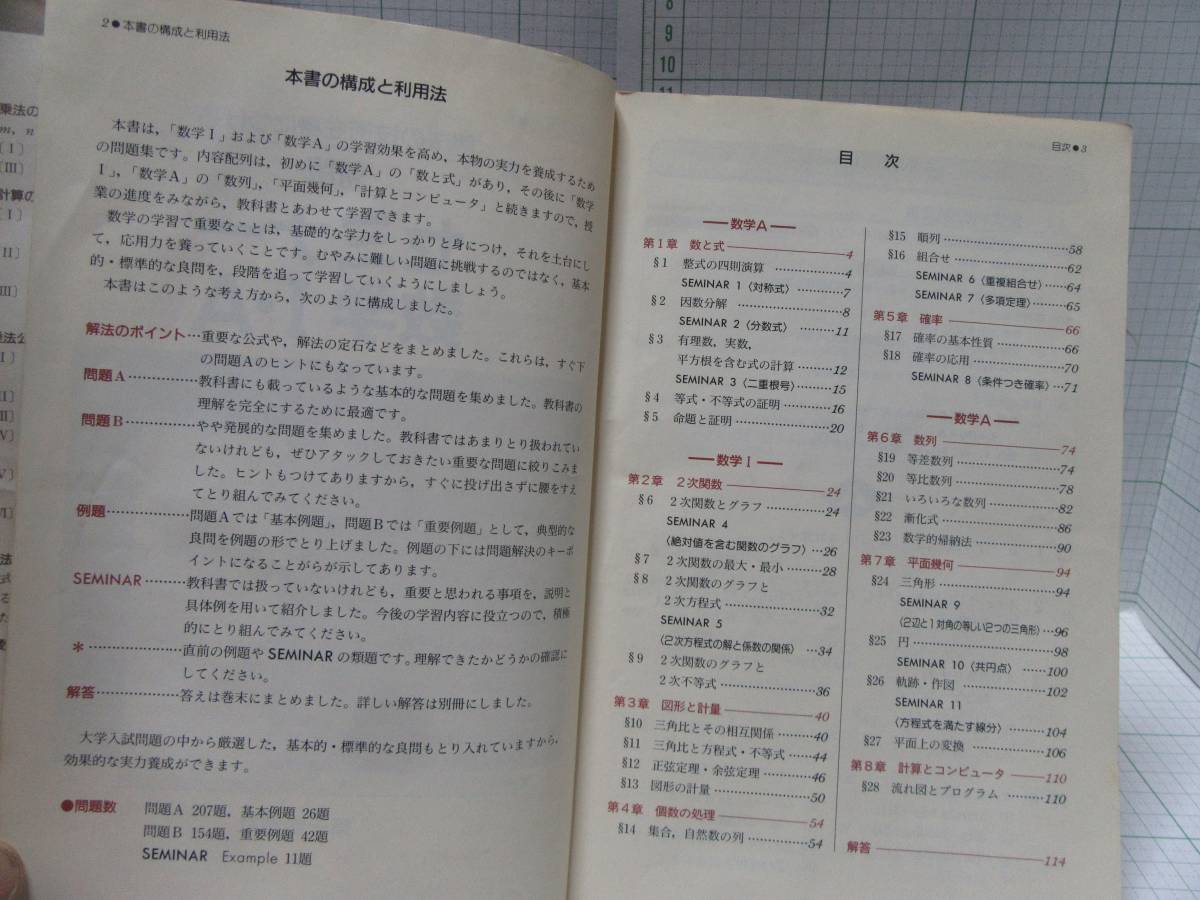 8
9
10
11
乗法の
m, n
〔I〕
〔III〕
計算の
〔I〕
II〕
III〕
法
式
2●本書の構成と利用法
本書の構成と利用法
本書は，「数学I」および「数学A」の学習効果を高め，本物の実力を養成するため
の問題集です。内容配列は，初めに「数学A」の「数と式」があり，その後に「数学
I」，「数学A」の「数列」，「平面幾何」，「計算とコンピュータ」と続きますので，授
業の進度をみながら，教科書とあわせて学習できます。
数学の学習で重要なことは，基礎的な学力をしっかりと身につけ，それを土台にし
て，応用力を養っていくことです。むやみに難しい問題に挑戦するのではなく，基本
的・標準的な良問を，段階を追って学習していくようにしましょう。
本書はこのような考え方から，次のように構成しました。
解法のポイント…重要な公式や，解法の定石などをまとめました。これらは，すぐ下
の問題Aのヒントにもなっています。
問題A……………教科書にも載っているような基本的な問題を集めました。教科書の
理解を完全にするために最適です。
問題B……………やや発展的な問題を集めました。教科書ではあまりとり扱われてい
ないけれども，ぜひアタックしておきたい重要な問題に絞りこみま
した。ヒントもつけてありますから，すぐに投げ出さずに腰をすえ
てとり組んでみてください。
例題………………問題Aでは「基本例題」，問題Bでは「重要例題」として，典型的な
良問を例題の形でとり上げました。例題の下には問題解決のキーポ
イントになることがらが示してあります。
SEMINAR………教科書では扱っていないけれども，重要と思われる事項を，説明と
具体例を用いて紹介しました。今後の学習内容に役立つので，積極
的にとり組んでみてください。
*…………………直前の例題やSEMINARの類題です。理解できたかどうかの確認に
してください。
解答………………答えは巻末にまとめました。詳しい解答は別冊にしました。
大学入試問題の中から厳選した，基本的・標準的な良問もとり入れていますから，
効果的な実力養成ができます。
●問題数 問題A 207題，基本例題 26題
問題B 154題，重要例題 42題
SEMINAR Example 11題
目次●3
目 次
数学A
第1章 数と式 4
§1 整式の四則演算 …………4
SEMINAR 1〈対称式〉………7
§2 因数分解 …………………8
SEMINAR 2〈分数式〉………11
§3 有理数，実数，
平方根を含む式の計算 ………12
SEMINAR 3〈二重根号〉……15
§4 等式・不等式の証明…………16
§5 命題と証明……………………20
数学I
第2章 2次関数 24
§6 2次関数とグラフ……………24
SEMINAR 4
〈絶対値を含む関数のグラフ〉…26
§7 2次関数の最大・最小………28
§8 2次関数のグラフと
2次方程式……………………32
SEMINAR 5
〈2次方程式の解と係数の関係〉…34
§9 2次関数のグラフと
2次不等式……………………36
第3章 図形と計量 40
§10 三角比とその相互関係………40
§11 三角比と方程式・不等式……44
§12 正弦定理・余弦定理…………46
§13 図形の計量……………………50
第4章 個数の処理 54
§14 集合，自然数の列……………54
§15 順列……………………………58
§16 組合せ…………………………62
SEMINAR 6〈重複組合せ〉……64
SEMINAR 7〈多項定理〉………65
第5章 確率 66
§17 確率の基本性質………………66
§18 確率の応用……………………70
SEMINAR 8〈条件つき確率〉…71
数学A
第6章 数列 74
§19 等差数列………………………74
§20 等比数列………………………78
§21 いろいろな数列………………82
§22 漸化式…………………………86
§23 数学的帰納法…………………90
第7章 平面幾何 94
§24 三角形…………………………94
SEMINAR 9
〈2辺と1対角の等しい2つの三角形〉…96
§25 円………………………………98
SEMINAR 10〈共円点〉………100
§26 軌跡・作図……………………102
SEMINAR 11
〈方程式を満たす線分〉………104
§27 平面上の変換…………………106
第8章 計算とコンピュータ 110
§28 流れ図とプログラム…………110
解答 114